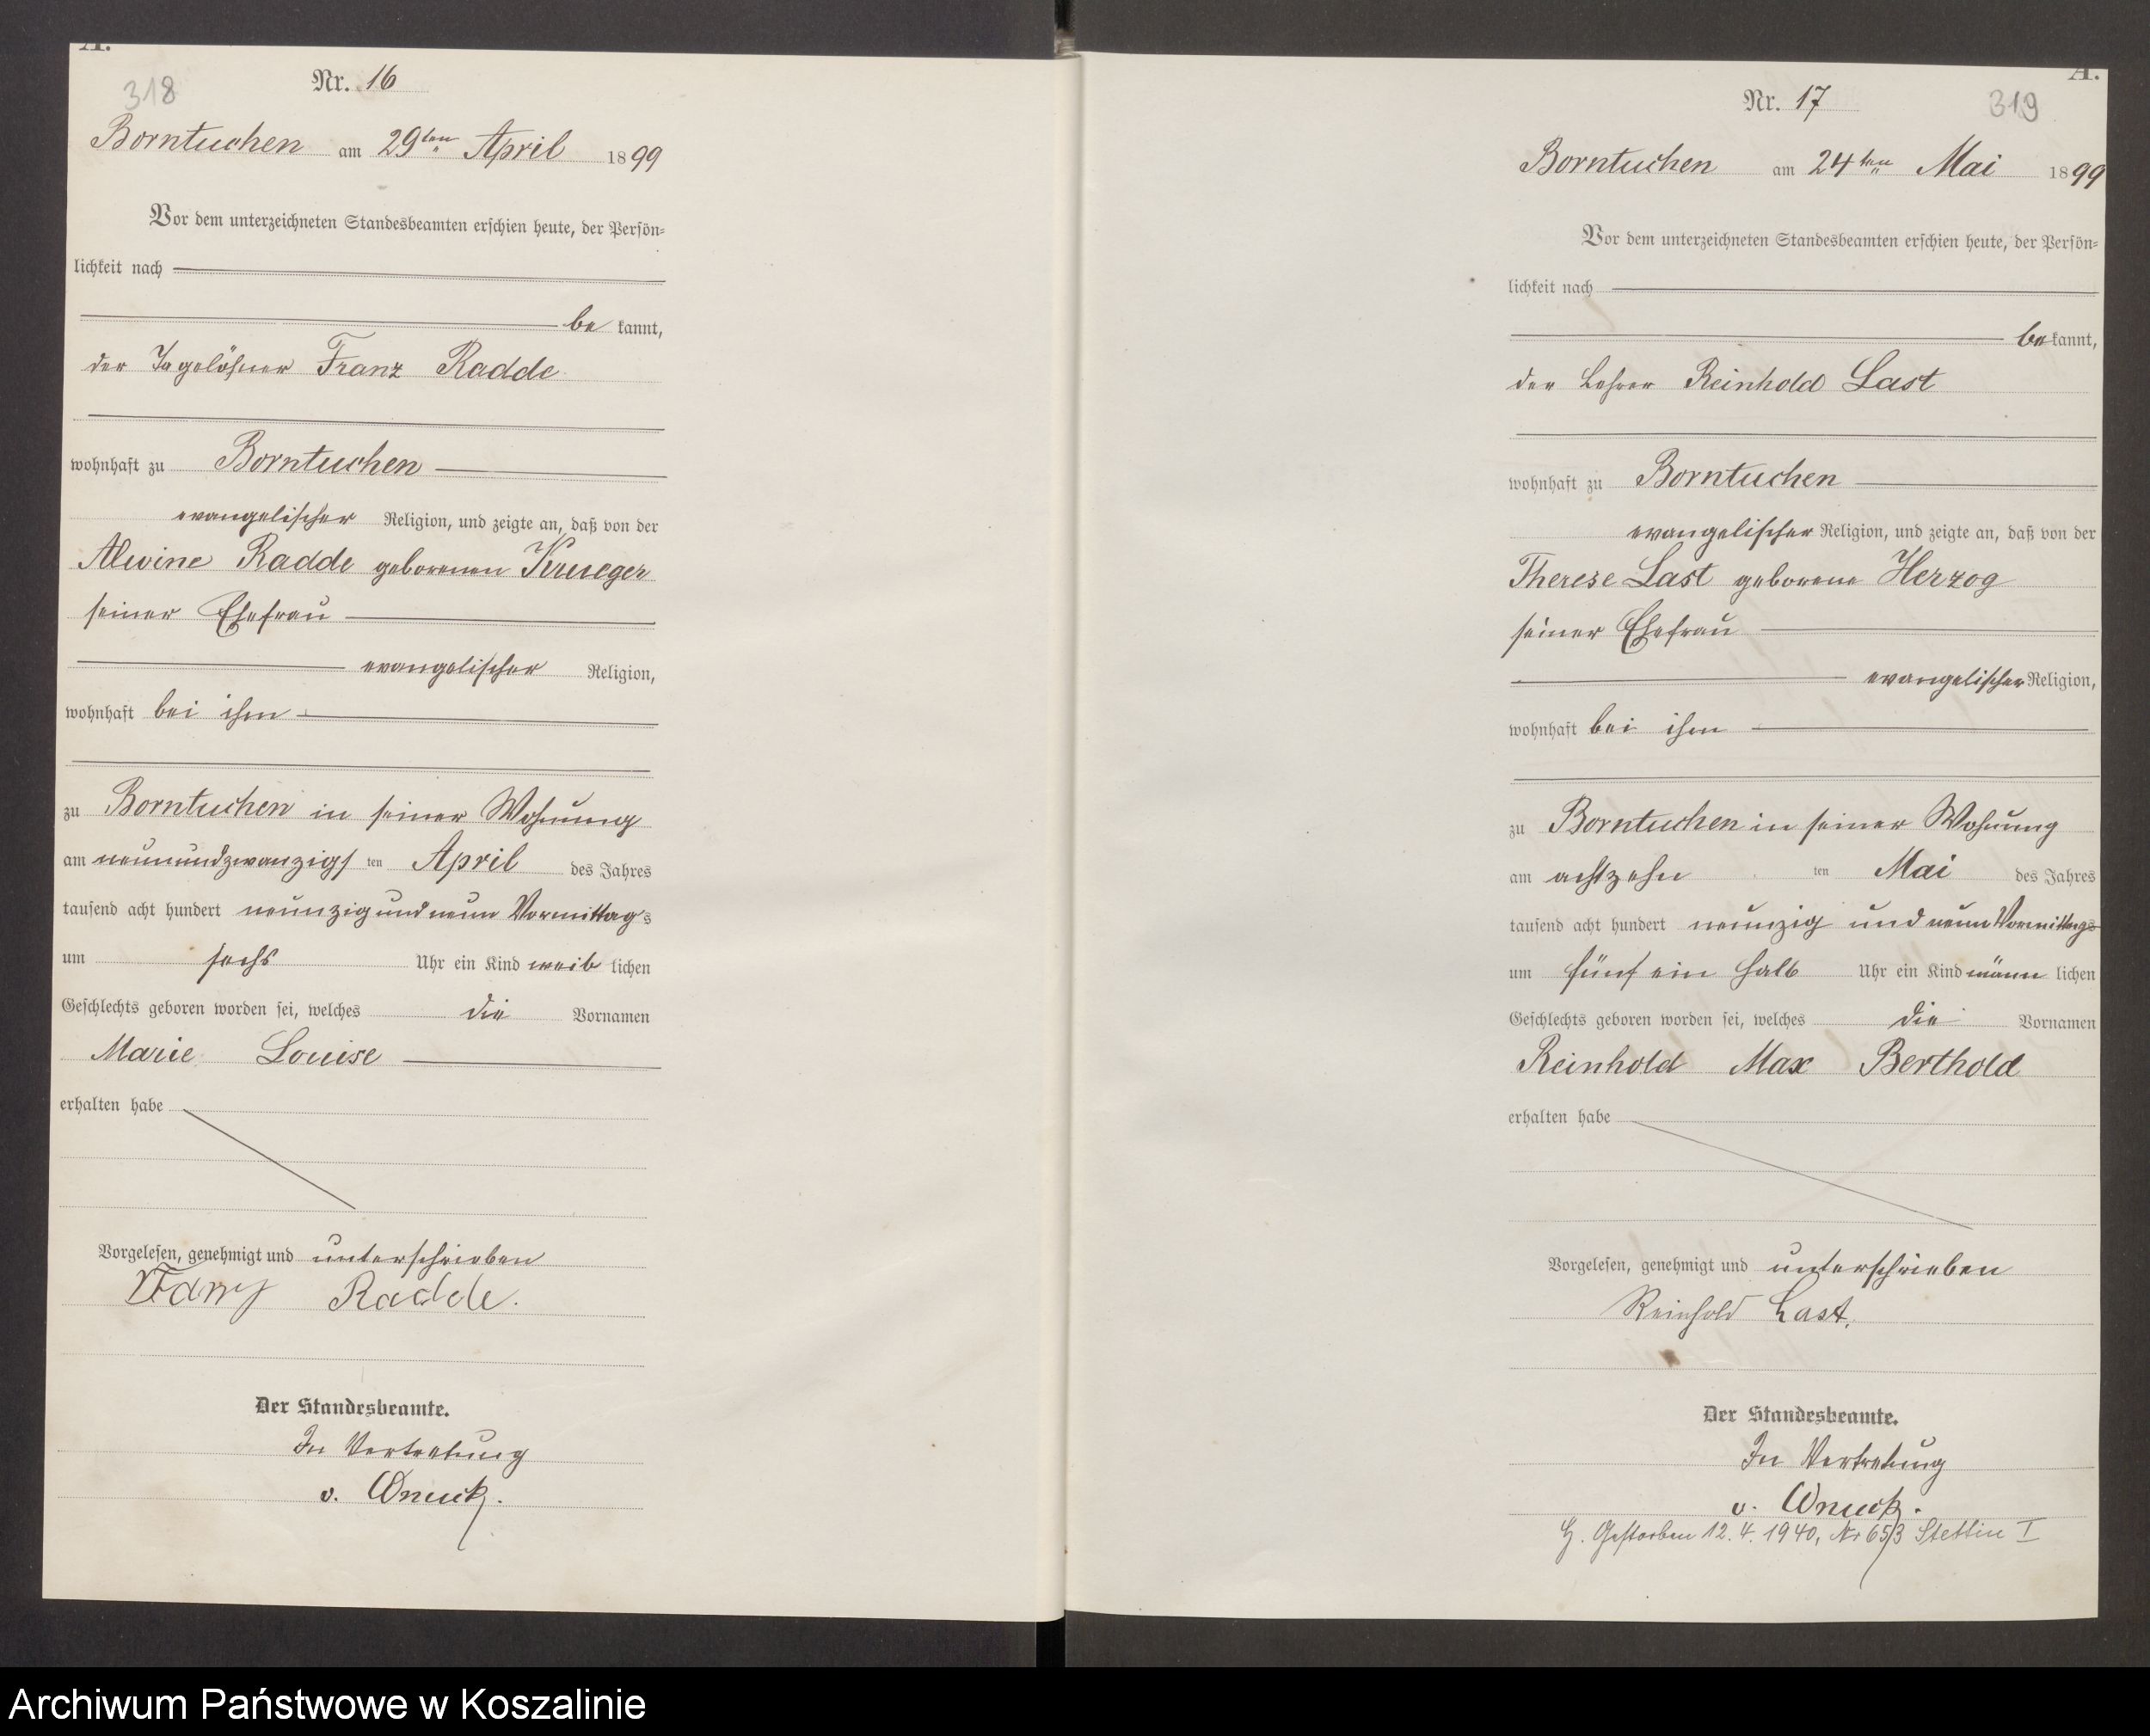 A.
318
Nr. 16
Borntuchen am 29ten April 1899
Vor dem unterzeichneten Standesbeamten erschien heute, der Persön-
lichkeit nach
be kannt,
der Tagelöhner Franz Radde
wohnhaft zu Borntuchen
evangelischer Religion, und zeigte an, daß von der
Alwine Radde geborenen Krueger
seiner Ehefrau
evangelischer Religion,
wohnhaft bei ihm
zu Borntuchen in seiner Wohnung
am neunundzwanzigs ten April des Jahres
tausend acht hundert neunzig und neun Vormittags
um sechs Uhr ein Kind weib lichen
Geschlechts geboren worden sei, welches die Vornamen
Marie Louise
erhalten habe
Vorgelesen, genehmigt und unterschrieben
Radde.
Der Standesbeamte.
In Vertretung
v. Wnuck.
A.
319
Nr. 17
Borntuchen am 24ten Mai 1899
Vor dem unterzeichneten Standesbeamten erschien heute, der Persön-
lichkeit nach
bekannt,
der Lehrer Reinhold Last
wohnhaft zu Borntuchen
evangelischer Religion, und zeigte an, daß von der
Therese Last geborene Herzog
seiner Ehefrau
evangelischer Religion,
wohnhaft bei ihm
zu Borntuchen in seiner Wohnung
am achtzehn ten Mai des Jahres
tausend acht hundert neunzig und neun Vormittags
um fünf ein halb Uhr ein Kind männ lichen
Geschlechts geboren worden sei, welches die Vornamen
Reinhold Max Berthold
erhalten habe
Vorgelesen, genehmigt und unterschrieben
Reinhold Last.
Der Standesbeamte.
In Vertretung
v. Wnuck.
Gestorben 12.4.1940, Nr 653 Stettin I
Archiwum Państwowe w Koszalinie